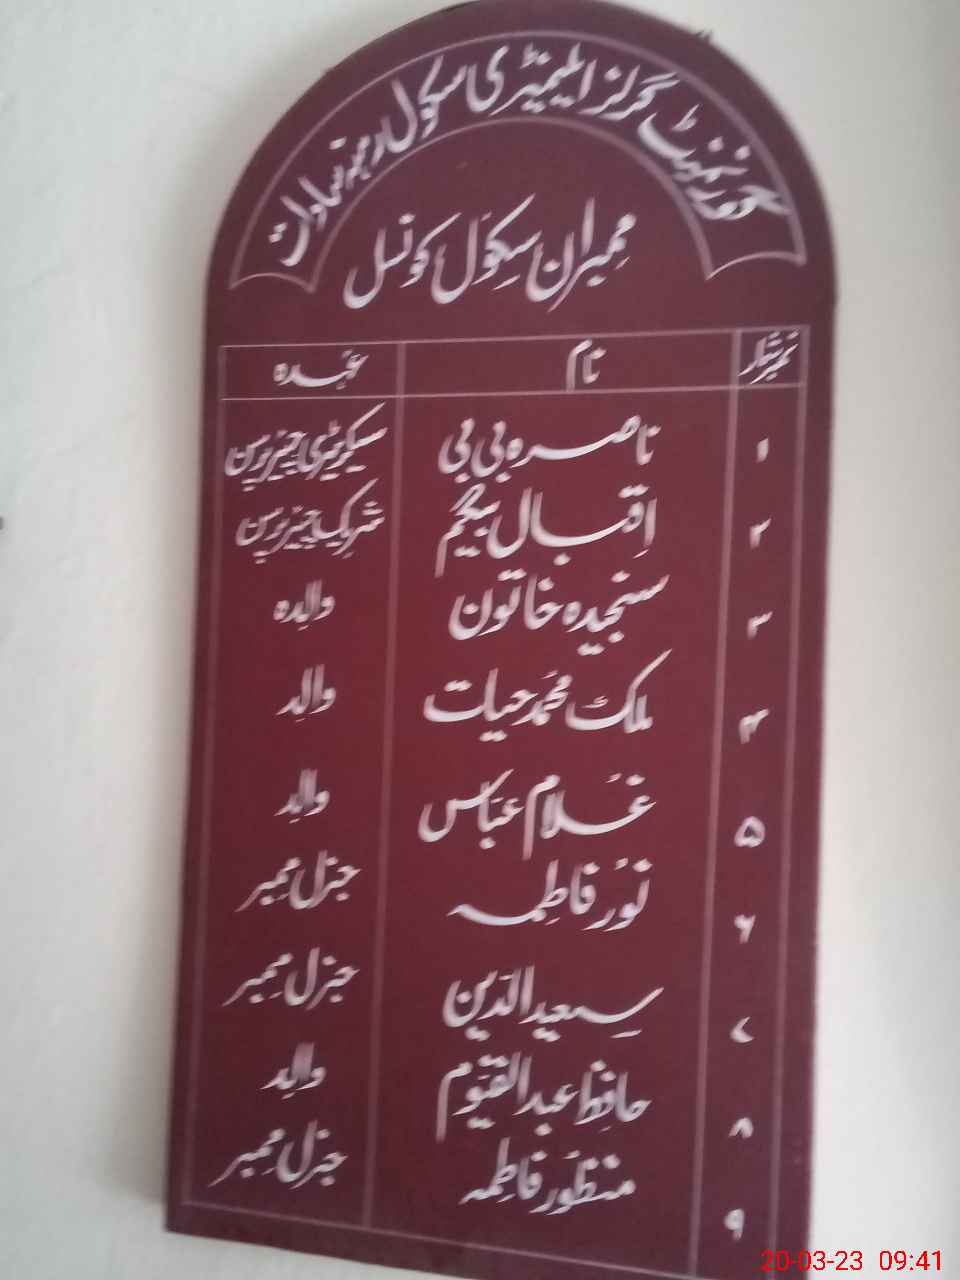 گورنمنٹ گرلز ایلیمنٹری سکول رہنہ سادات
ممبران سکول کونسل
نمبر شمار نام عہدہ
۱ ناصرہ بی بی سیکریٹری چیئرپرسن
۲ اقبال بیگم شریک چیئرپرسن
۳ سنجیدہ خاتون والدہ
۴ ملک محمد حیات والد
۵ غلام عباس والد
۶ نور فاطمہ جنرل ممبر
۷ سعید الدین جنرل ممبر
۸ حافظ عبدالقیوم والد
۹ منظور فاطمہ جنرل ممبر
20-03-23 09:41